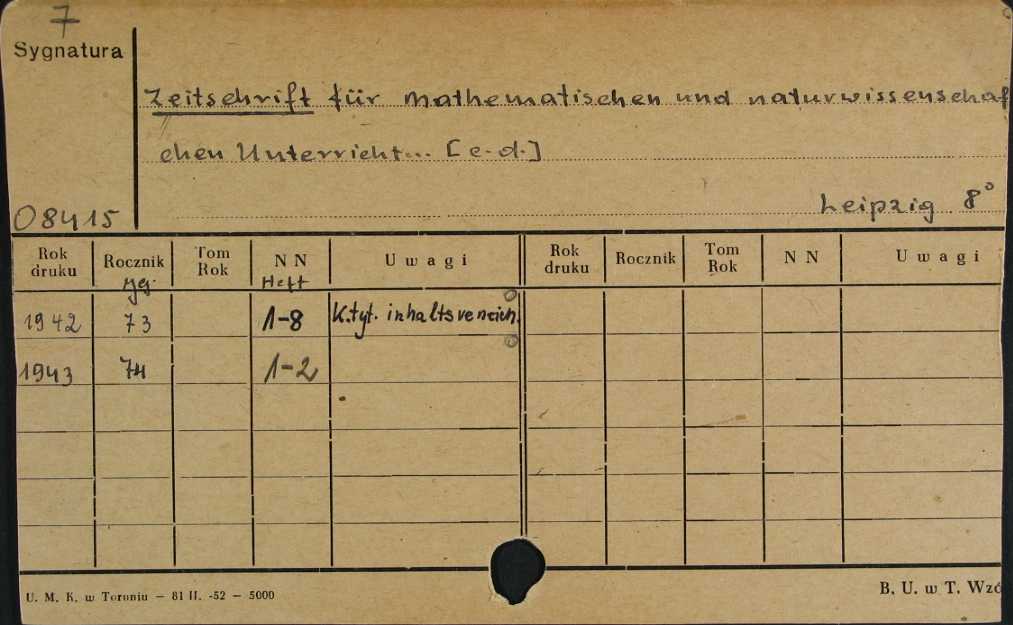 7
Sygnatura
Zeitschrift für mathematischen und naturwissenschaf
chen Unterricht... [c.d.]
08415
Leipzig 8°
Rok druku Rocznik Tom Rok N N U w a g i Rok druku Rocznik Tom Rok N N U w a g i
Jg. Heft
1942 73 1-8 K.tyt. inhaltsverzeich.
1943 74 1-2
U. M. K. w Toruniu — 81 II. -52 — 5000
B. U. w T. Wzó